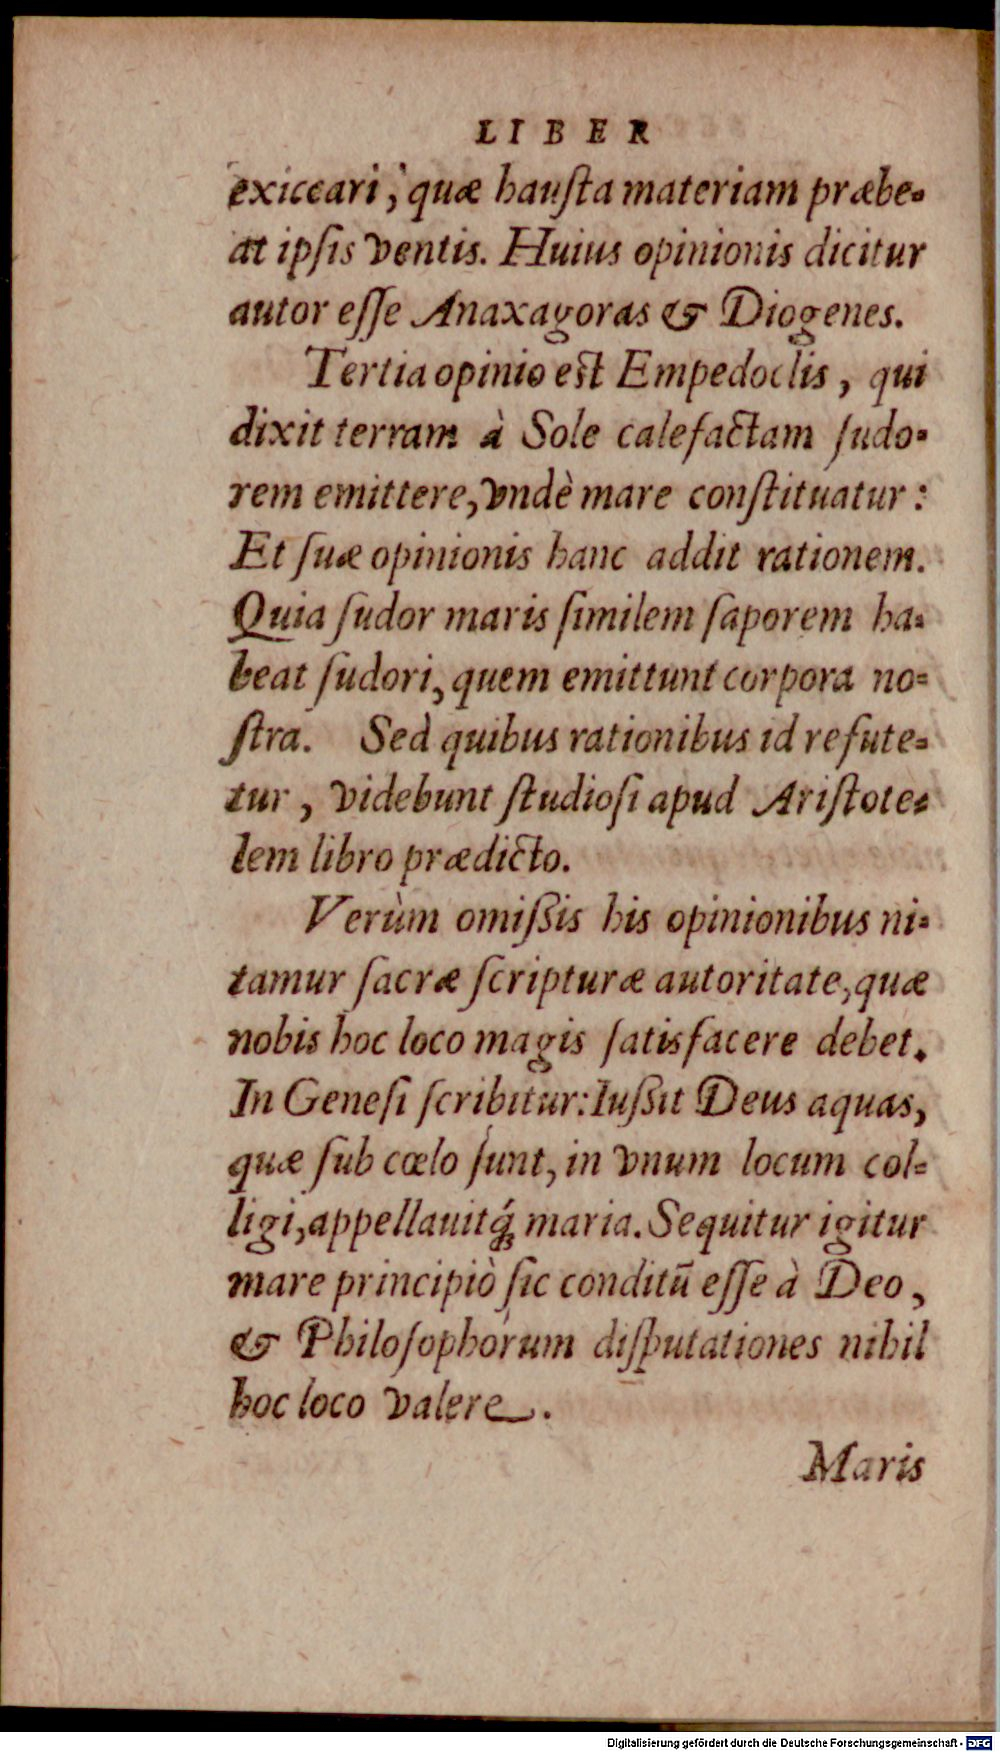 LIBER
exiccari, quæ hauſta materiam præbe-
at ipſis ventis. Huius opinionis dicitur
autor eſſe Anaxagoras & Diogenes.
Tertia opinio eſt Empedoclis, qui
dixit terram à Sole calefactam ſudo-
rem emittere, vndè mare conſtituatur:
Et ſuæ opinionis hanc addit rationem.
Quia ſudor maris ſimilem ſaporem ha-
beat ſudori, quem emittunt corpora no-
ſtra. Sed quibus rationibus id refute-
tur, videbunt ſtudioſi apud Ariſtote-
lem libro prædicto.
Verùm omißis his opinionibus ni-
tamur ſacræ ſcripturæ autoritate, quæ
nobis hoc loco magis ſatisfacere debet.
In Geneſi ſcribitur: Iußit Deus aquas,
quæ ſub cœlo ſunt, in vnum locum col-
ligi, appellauitq́; maria. Sequitur igitur
mare principiò ſic conditū eſſe à Deo,
& Philoſophorum diſputationes nihil
hoc loco valere.
Maris
Digitalisierung gefördert durch die Deutsche Forschungsgemeinschaft - DFG